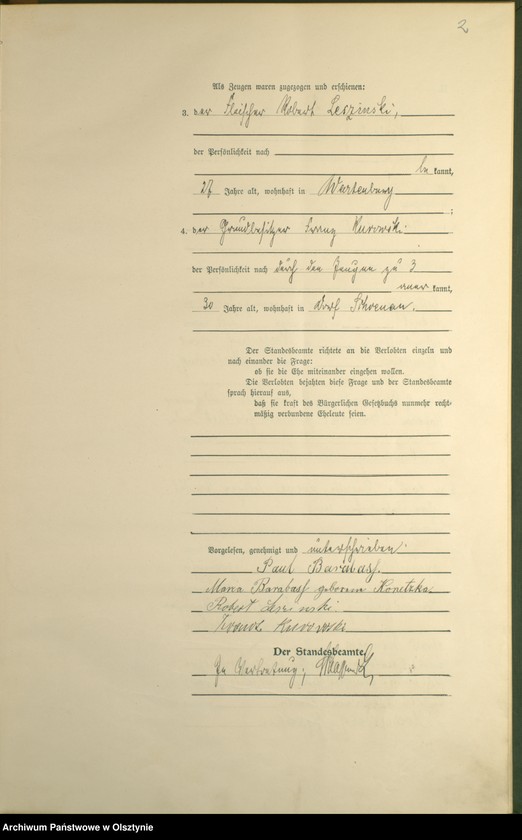 2
Als Zeugen waren zugezogen und erschienen:
3. der Fleischer Robert Leszinski,
der Persönlichkeit nach
be kannt,
27 Jahre alt, wohnhaft in Wartenburg
;
4. der Grundbesitzer Franz Kurowski
der Persönlichkeit nach durch den Zeugen zu 3
aner kannt,
30 Jahre alt, wohnhaft in Dorf Schoenau.
Der Standesbeamte richtete an die Verlobten einzeln und
nach einander die Frage:
ob sie die Ehe miteinander eingehen wollen.
Die Verlobten bejahten diese Frage und der Standesbeamte
sprach hierauf aus,
daß sie kraft des Bürgerlichen Gesetzbuchs nunmehr recht-
mäßig verbundene Eheleute seien.
Vorgelesen, genehmigt und unterschrieben
Paul Barabasz.
Maria Barabasz geborene Konetzka.
Robert Leszinski.
Franz Kurowski
Der Standesbeamte.
In Vertretung;
Archiwum Państwowe w Olsztynie